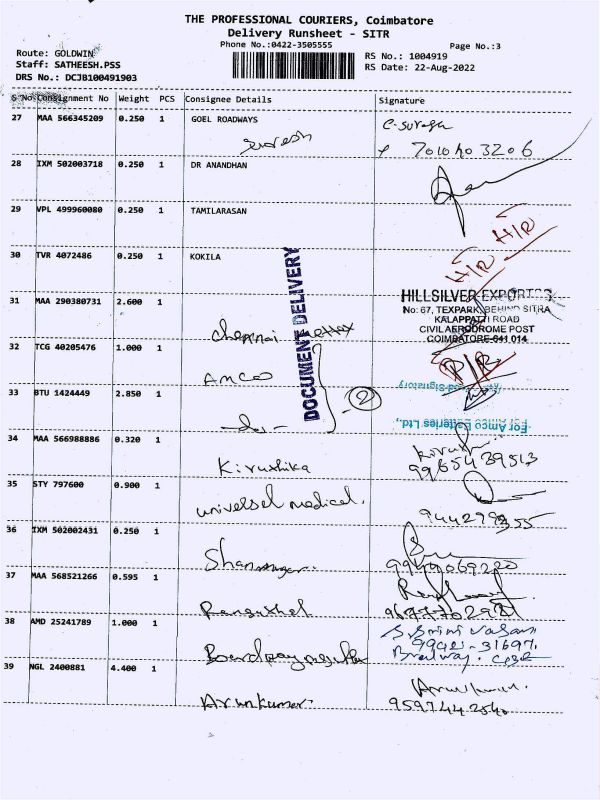 THE PROFESSIONAL COURIERS, Coimbatore
Delivery Runsheet - SITR
Phone No.:0422-3505555
Page No.:3
Route: GOLDWIN
Staff: SATHEESH.PSS
DRS No.: DCJB100491903
RS No.: 1004919
RS Date: 22-Aug-2022
S No Consignment No Weight PCS Consignee Details Signature
27 MAA 566345209 0.250 1 GOEL ROADWAYS
suresh
C-Suresh
7010403206
28 IXM 502003718 0.250 1 DR ANANDHAN
29 VPL 499960080 0.250 1 TAMILARASAN
H/R H/R
30 TVR 4072486 0.250 1 KOKILA
DOCUMENT DELIVERY
31 MAA 290380731 2.600 1
chennai
HILLSILVER EXPORTS
No: 67, TEXPARK, BEHIND SITRA
KALAPPATTI ROAD
CIVIL AERODROME POST
COIMBATORE-641 014
32 TCG 40205476 1.000 1
AMCO
33 BTU 1424449 2.850 1
-do-
2
For Amco Batteries Ltd.,
34 MAA 566988886 0.320 1
Kirushika
9965439513
35 STY 797600 0.900 1
universel medical.
944279355
36 IXM 502002431 0.250 1
37 MAA 568521266 0.595 1
38 AMD 25241789 1.000 1
S. Srinivasan
39 NGL 2400881 4.400 1
Arunkumar.
Arunkumar.
9597442540